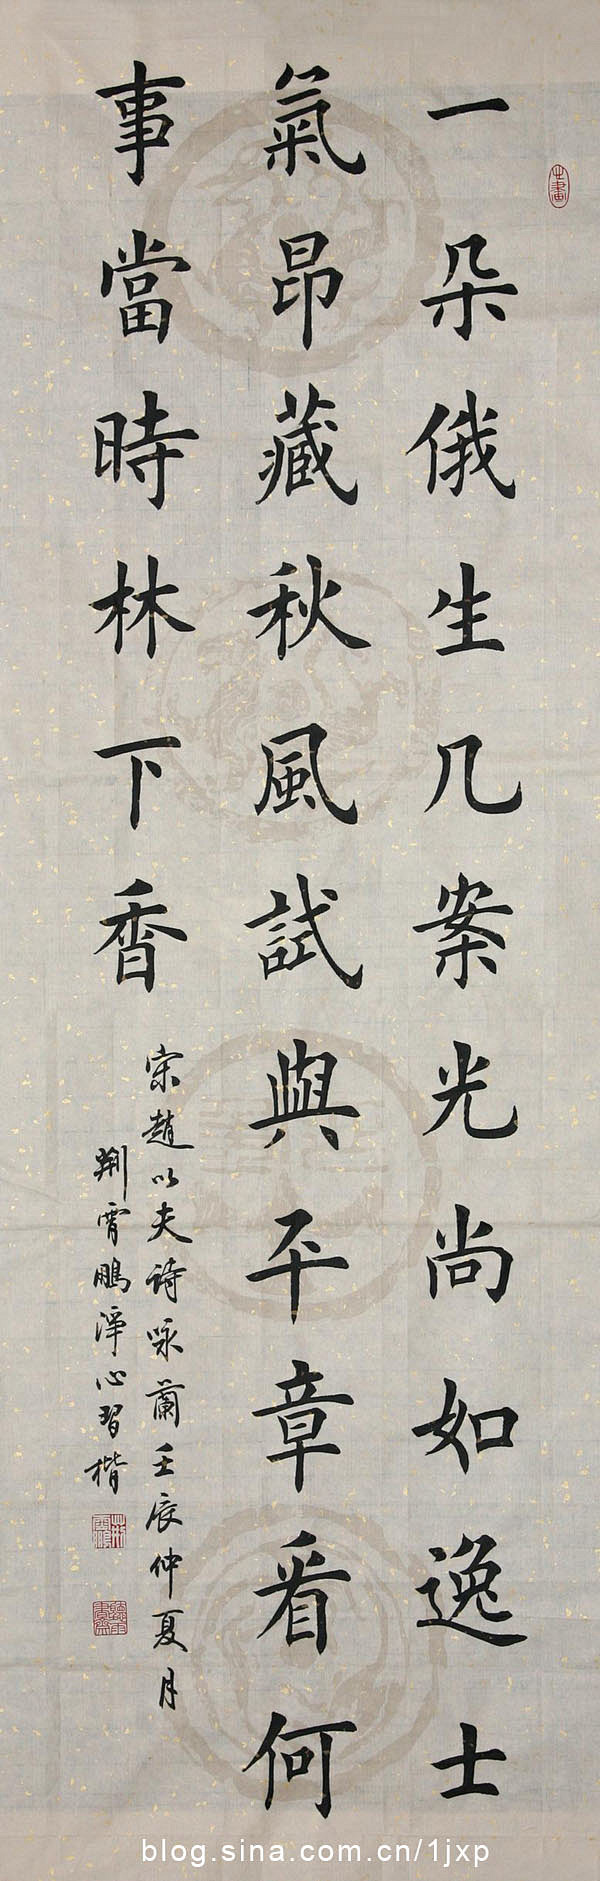 一朵俄生几案光尚如逸士
氣昂藏秋風試與平章看何
事當時林下香
宋趙以夫詩咏蘭壬辰仲夏月
荆霄鵬淨心習楷
blog.sina.com.cn/1jxp